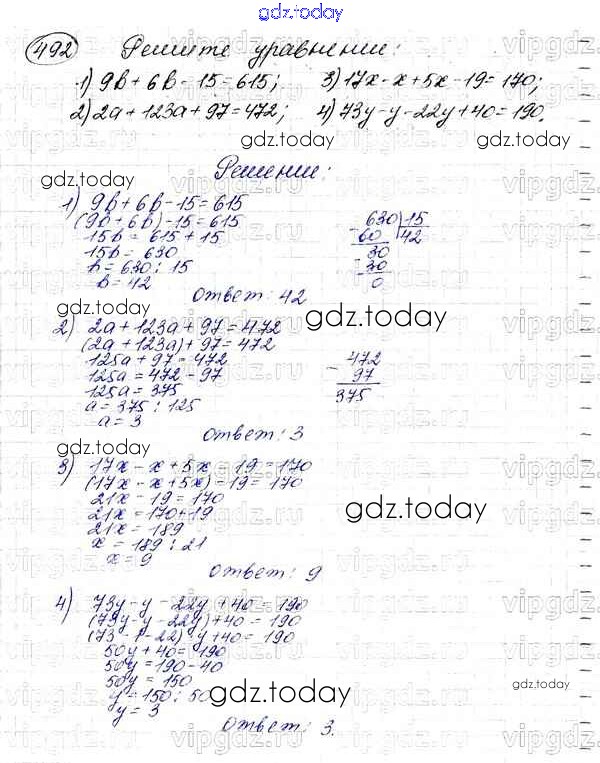 gdz.today
492 Решите уравнении:
1) 9b + 6b - 15 = 615; 3) 17x - x + 5x - 19 = 170;
2) 2a + 123a + 97 = 472; 4) 73y - y - 22y + 40 = 190.
gdz.today gdz.today
gdz.today Решении:
1) 9b + 6b - 15 = 615
(9b + 6b) - 15 = 615
15b = 615 + 15
15b = 630
b = 630 : 15
b = 42
630 15
- 60 42
30
- 30
0
Ответ: 42
gdz.today gdz.today
2) 2a + 123a + 97 = 472
(2a + 123a) + 97 = 472
125a + 97 = 472
125a = 472 - 97
125a = 375
a = 375 : 125
a = 3
- 472
97
375
Ответ: 3
gdz.today
3) 17x - x + 5x - 19 = 170
(17x - x + 5x) - 19 = 170
21x - 19 = 170
21x = 170 + 19
21x = 189
x = 189 : 21
x = 9
gdz.today
Ответ: 9
4) 73y - y - 22y + 40 = 190
(73y - y - 22y) + 40 = 190
(73 - 1 - 22) y + 40 = 190
50y + 40 = 190
50y = 190 - 40
50y = 150
y = 150 : 50
y = 3
gdz.today gdz.today
Ответ: 3.
vipgdz.ru